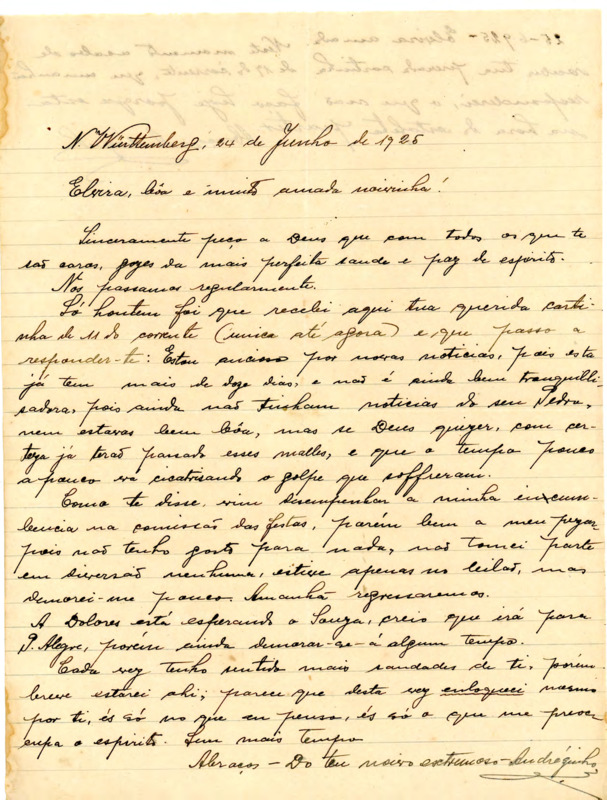 N. Württemberg, 24 de Junho de 1925
Elvira, bôa e muito amada noivinha!
Sinceramente peço a Deus que com todos os que te
são caros, gozes da mais perfeita saude e paz de espirito.
Nós passamos regularmente.
Só hontem foi que recebi aqui tua querida carti-
nha de 11 do corrente (unica até agora) e que passo a
responder-te: Estou ancioso por novas noticias, pois esta
já tem mais de doze dias, e não é ainda bem tranquilli-
sadora, pois ainda não tinham noticias do seu Pedro,
nem estavas bem bôa, mas se Deus quizer, com cer-
teza já terão passado esses malles, e que o tempo pouco
a pouco vá cicatrisando o golpe que soffreram.
Como te disse, vim desempenhar a minha incum-
bencia na comissão das festas, porém bem a meu pezar
pois não tenho gosto para nada, não tomei parte
em diversão nenhuma, estive apenas no leilão, mas
demorei-me pouco. Amanhã regressaremos.
A Dolores está esperando o Souza, creio que irá para
P. Alegre, porém ainda demorar-se-á algum tempo.
Cada vez tenho sentido mais saudades de ti, porém
breve estarei ahi; parece que desta vez enloqueci mesmo
por ti, és só no que eu penso, és só o que me preoc-
cupa o espirito. Sem mais tempo
Abraços - Do teu noivo extremoso - Andrézinho